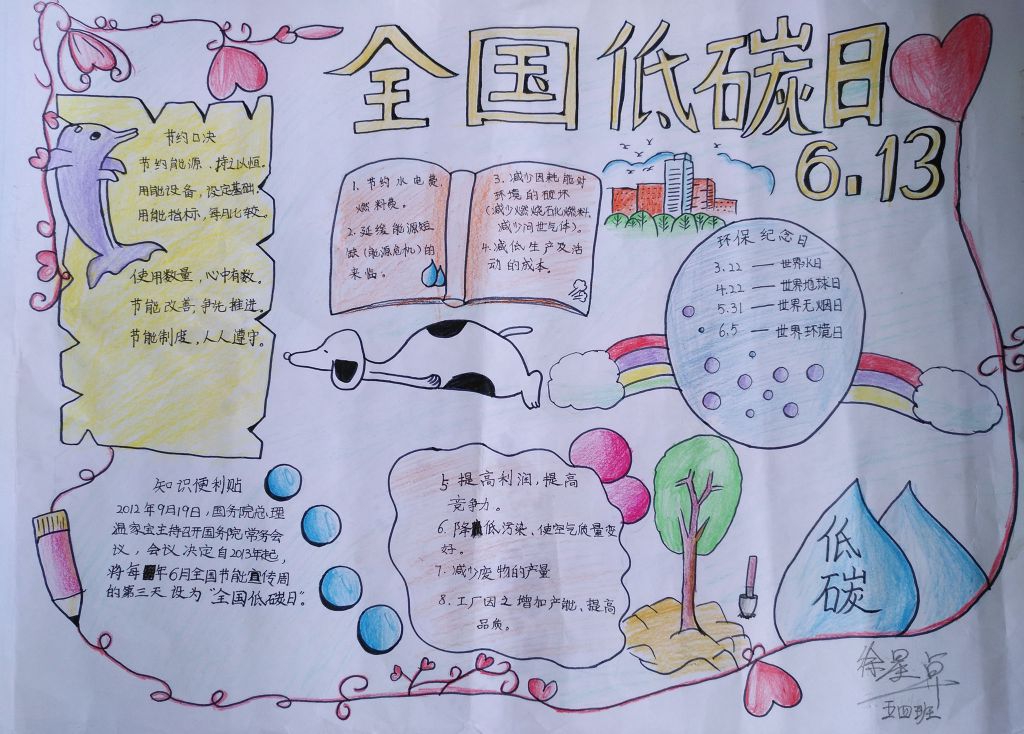 全国低碳日
6.13
节约口决
节约能源、持之以恒。
用能设备，设定基础。
用能指标，每月比较。
使用数量，心中有数。
节能改善，争先推进。
节能制度，人人遵守。
1. 节约水电费、
燃料费。
2. 延缓能源短
缺（能源危机）的
来临。
3. 减少因耗能对
环境的破坏
（减少燃烧石化燃料，
减少问世气体）。
4. 减低生产及活
动的成本。
环保纪念日
3.22 — 世界水日
4.22 — 世界地球日
5.31 — 世界无烟日
6.5 — 世界环境日
知识便利贴
2012年9月19日，国务院总理
温家宝主持召开国务院常务会
议，会议决定自2013年起，
将每年6月全国节能宣传周
的第三天设为“全国低碳日”。
5 提高利润，提高
竞争力。
6. 降低污染、使空气质量变
好。
7. 减少废物的产量
8. 工厂因之增加产能、提高
品质。
低
碳
徐星卓
五四班